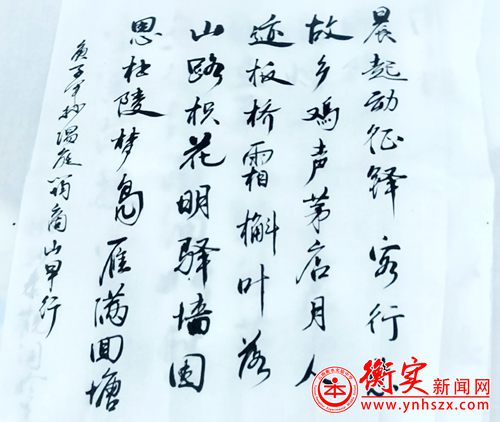 晨起动征铎客行悲
故乡鸡声茅店月人
迹板桥霜槲叶落
山路枳花明驿墙因
思杜陵梦凫雁满回塘
庚子年抄温庭筠商山早行
衡实新闻网
www.ynhszx.com